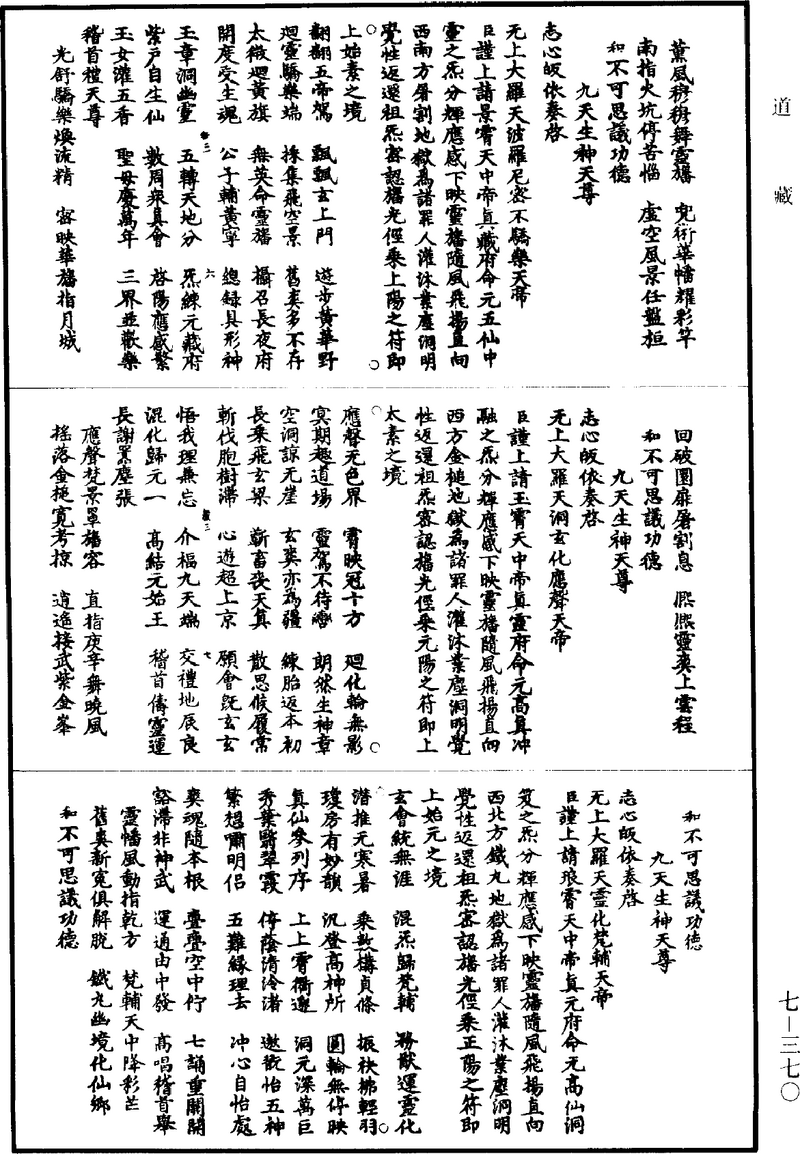 道藏
薰風拂拂舞靈旛　寬衍華幡耀彩竿
南指火坑停苦惱　虛空風景任盤桓
和不可思議功德
九天生神天尊
志心皈依奏啓
无上大羅天波羅尼密不驕樂天帝
臣謹上請景霄天中帝真藏府命元五仙中
靈之炁分輝應感下映靈旛隨風飛揚直向
西南方屠割地獄為諸罪人灌沐業塵洞明
覺性返還祖炁密認旛光徑乘上陽之符即
上始素之境
翩翩五帝駕　飄飄玄上門　遊步黃華野
迴靈驕樂端　採集飛空景　舊爽多不存
太微迴黃旗　無英命靈旛　攝召長夜府
開度受生魂　公子輔黃寧　總錄具形神
玉章洞幽靈　五轉天地分　炁練元藏府
紫戶自生仙　數周衆真會　啓陽應感繁
玉女灌五香　聖母慶萬年　三界並歡樂
稽首禮天尊
光舒驕樂煥流精　密映華旛指月城
回破園扉屠割息　熙熙靈爽上雲程
和不可思議功德
九天生神天尊
志心皈依奏啓
无上大羅天洞玄化應聲天帝
臣謹上請玉霄天中帝真靈府命元高真冲
融之炁分輝應感下映靈旛隨風飛揚直向
西方金槌地獄為諸罪人灌沐業塵洞明覺
性返還祖炁密認旛光徑乘元陽之符即上
太素之境
應聲无色界　霄映冠十方　迴化輪無影
冥期趣道場　靈駕不待轡　朗然生神章
空洞諒无崖　玄爽亦為彊　練胎返本初
長乘飛玄梁　蘄畜喪天真　散思候履常
斬伐胞樹滯　心遊超上京　願會旣玄玄
悟我理兼忘　介福九天端　交禮地辰良
混化歸元一　高結元始王　稽首儔靈運
長謝累塵張
應聲梵景罩旛容　直指庚辛舞曉風
搖落金槌寬考掠　逍遙接武紫金峯
和不可思議功德
九天生神天尊
志心皈依奏啓
无上大羅天靈化梵輔天帝
臣謹上請琅霄天中帝真元府命元高仙洞
笈之炁分輝應感下映靈旛隨風飛揚直向
西北方鐵丸地獄為諸罪人灌沐業塵洞明
覺性返還祖炁密認旛光徑乘正陽之符即
上始元之境
玄會統無涯　混炁歸梵輔　務猷運靈化
潛推无寒暑　乘數構貞條　振袂拂輕羽
瓊房有妙韻　汎登高神所　圓輪無停映
真仙參列序　上上霄衢邃　洞元深萬巨
秀葉翳翠霞　停蔭清泠渚　遨翫怡五神
繁想嘯明侶　五難緣理去　冲心自怡處
爽魂隨本根　亹亹空中佇　七誦重關開
豁滯非神武　運通由中發　高唱稽首舉
靈幡風動指乾方　梵輔天中降彩芒
舊爽新寃俱解脫　鐵丸幽境化仙鄉
和不可思議功德
七—三七〇